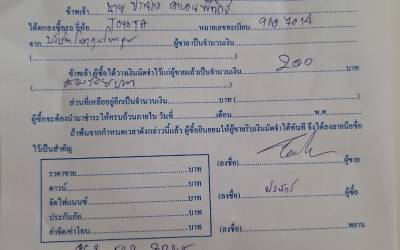 ข้าพเจ้า
ได้ตกลงซื้อรถ ยี่ห้อ TOYOTA หมายเลขทะเบียน
จาก ผู้ขาย เป็นจำนวนเงิน
( )
ข้าพเจ้า ผู้ซื้อได้วางเงินมัดจำไว้แก่ผู้ขายแล้วเป็นจำนวนเงิน 200
( สองร้อยบาท )
ส่วนที่เหลืออยู่อีกเป็นจำนวนเงิน บาท ( )
ผู้ซื้อจะต้องนำมาชำระให้ครบถ้วนภายใน วันที่ เดือน พ.ศ.
ถ้าพ้นจากกำหนดเวลาดังกล่าวนี้แล้ว ผู้ซื้อยินยอมให้ผู้ขายริบเงินมัดจำได้ทันที จึงได้ลงลายมือชื่อ
ไว้เป็นสำคัญ
(ลงชื่อ) ผู้ขาย
ราคาขาย บาท
ดาวน์ บาท
(ลงชื่อ) ผู้ซื้อ
จัดไฟแนนซ์ บาท
ประกันภัย บาท
ค่าจัด/ค่าโอน บาท
(ลงชื่อ) พยาน